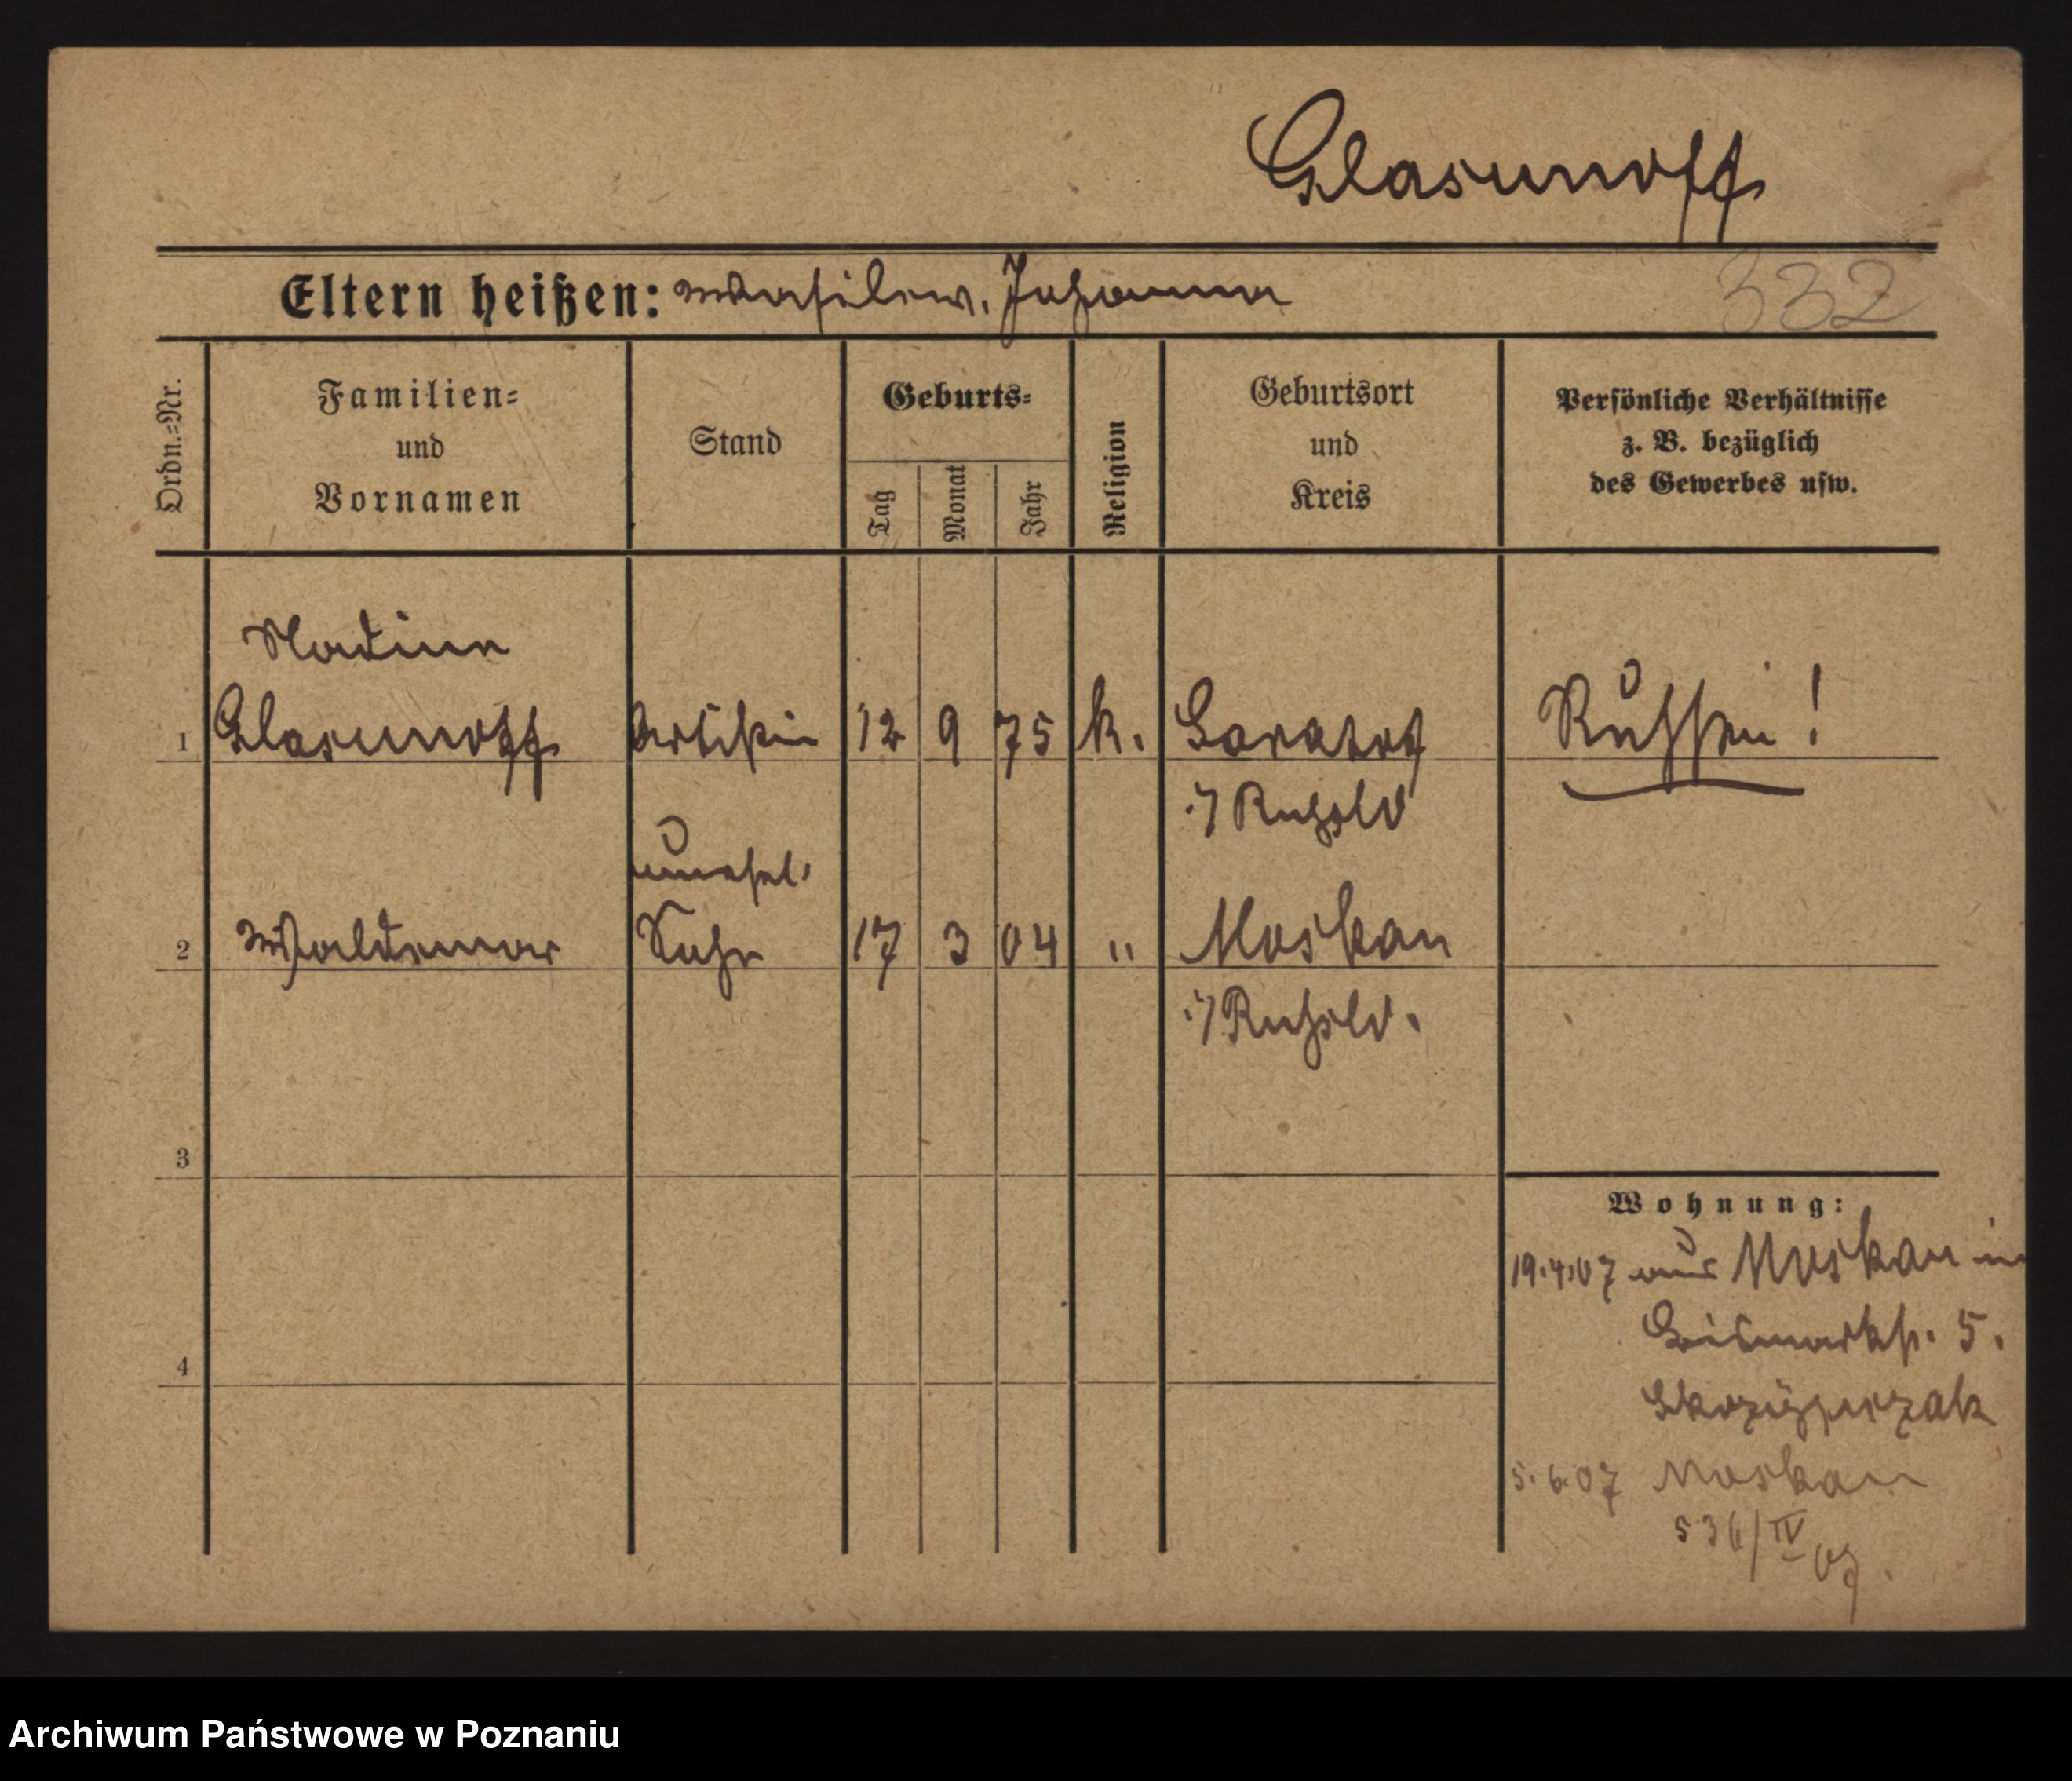 Glasunoff
Eltern heißen: Wasilew. Johanna
332
Ordn.=Nr.
Familien= und Vornamen
Stand
Geburts=
Tag
Monat
Jahr
Religion
Geburtsort und Kreis
Persönliche Verhältnisse z. B. bezüglich des Gewerbes usw.
Nadine
1 Glasunoff Artistin 12 9 75 k. Saratof Russin!
i/ Rußld
unehel.
2 Waldemar Sohn 17 3 04 " Moskau
i/ Rußld.
3
4
Wohnung:
19.4.07 aus Moskau in
Bismarkstr. 5.
5.6.07 Moskau
536/IV 07.
Archiwum Państwowe w Poznaniu